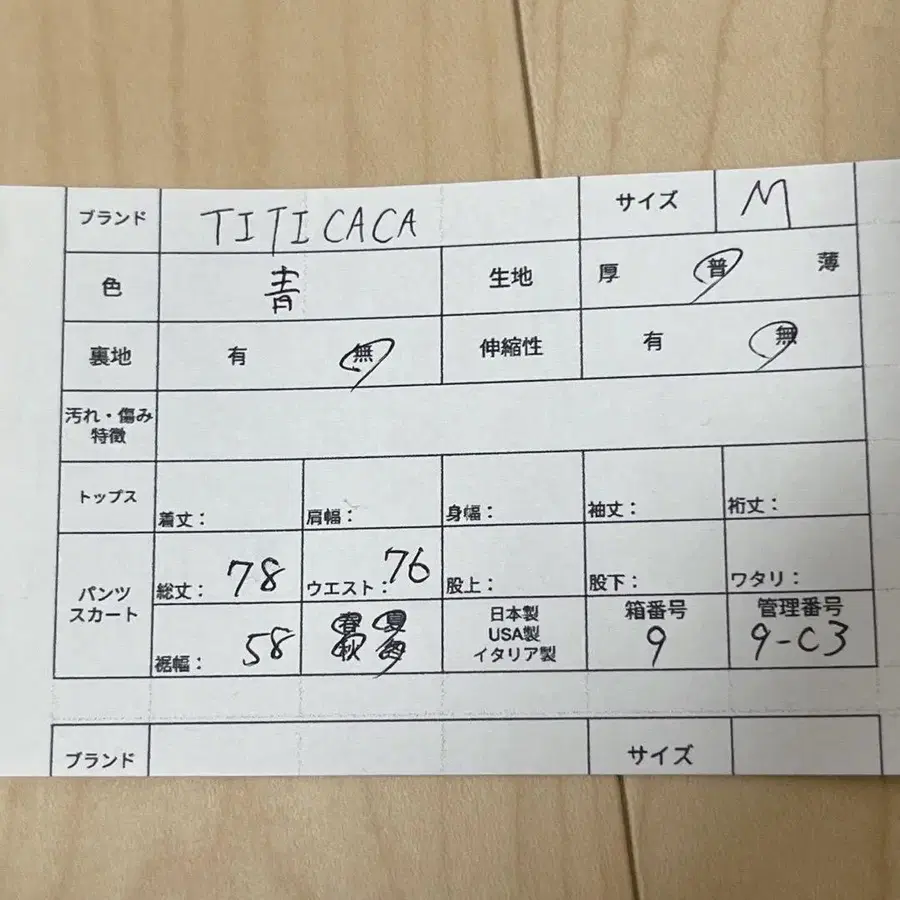 ブランド TITICACA サイズ M
色 青 生地 厚 普 薄
裏地 有 無 伸縮性 有 無
汚れ・傷み
特徴
トップス 着丈: 肩幅: 身幅: 袖丈: 裄丈:
パンツ
スカート
総丈: 78 ウエスト: 76 股上: 股下: ワタリ:
裾幅: 58 春 夏
秋 冬
日本製
USA製
イタリア製
箱番号
9
管理番号
9-C3
ブランド サイズ